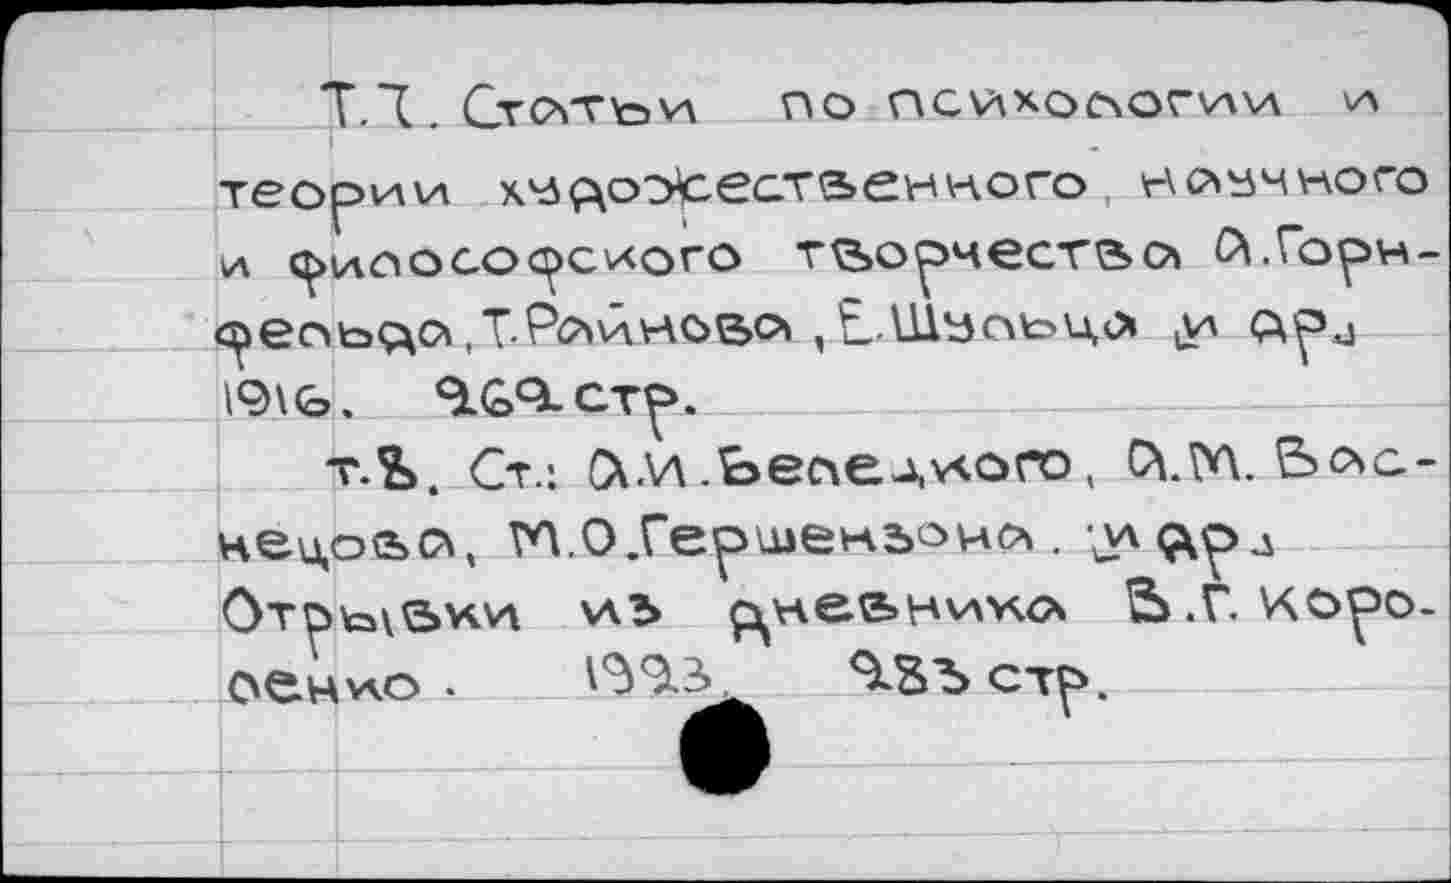 Т.7. Статьи по психологии и
теории художественного, научного
и философского творчества А.Горн-
фельда, Т.Райнова, Е.Шульца [и др.]
1916. 262 стр.
т.8. Ст.: А.И.Белецкого, А.М. Вас-
нецова, М.О.Гершензона. [и др.]
Отрывки из дневника В.Г. Коро-
ленко. 1923. 283 стр.